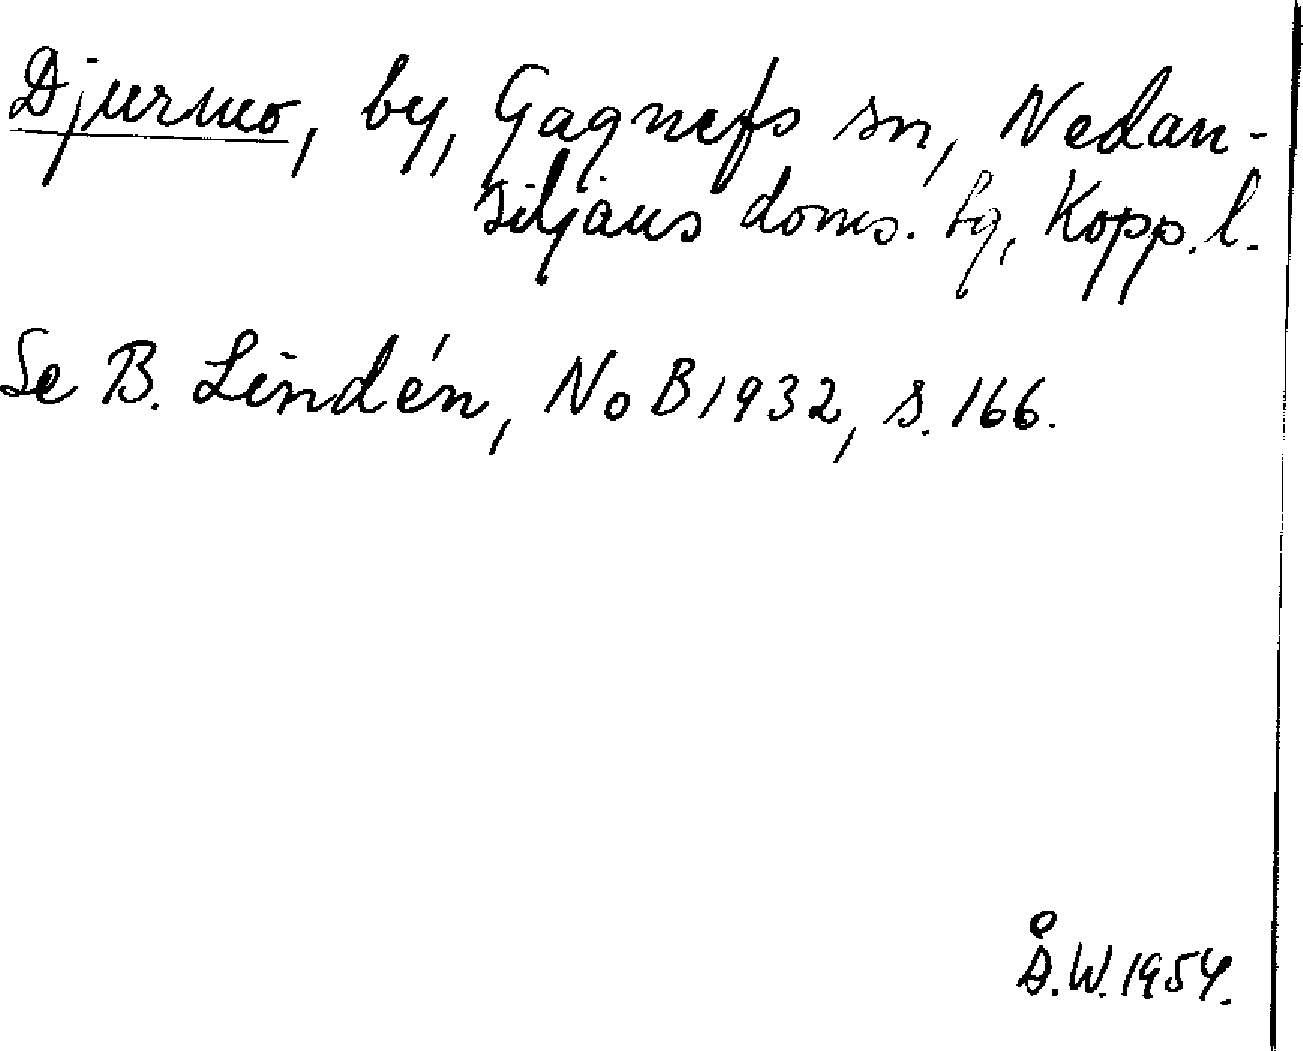 Djurmo, by, Gagnefs sn, Nedan-
siljans doms. tg, Kopp. l.
Se B. Lindén, NoB 1932, s. 166.
Å.W. 1954.